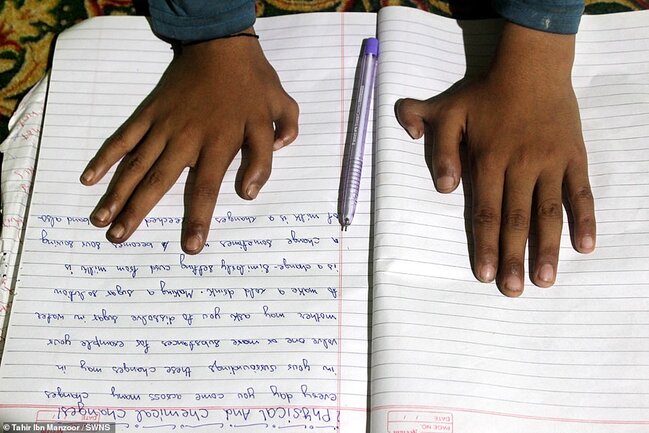 Physical And Chemical Changes!
every day you come across many changes
in your surroundings these changes may in
volve one or more substances for example your
mother may ask you to dissolve sugar in water
to make a cold drink. Making a sugar solution
is a change. Similarly setting curd from milk is
a change sometimes becomes sour souring
of milk is a changes and also
PAGE NO.
© Tahir Ibn Manzoor / SWNS